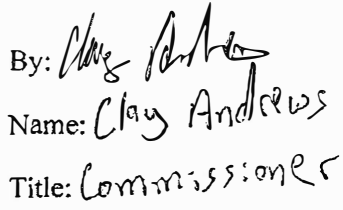 By: Clay Andrews
Name: Clay Andrews
Title: Commissioner